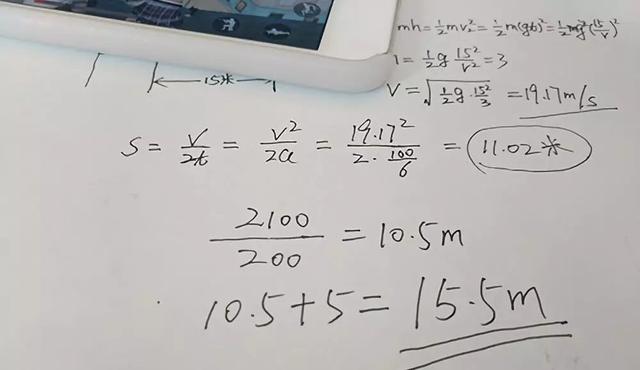 mh = ½mv₂² = ½m(gt)² = ½mg²(15/v)²
= ½g 15²/v² = 3
15米
V = √(½g·15²/3) = 19.17m/s
S = V/2t = V²/2a = 19.17²/(2·100/6) = 11.02米
2100/200 = 10.5m
10.5+5 = 15.5m